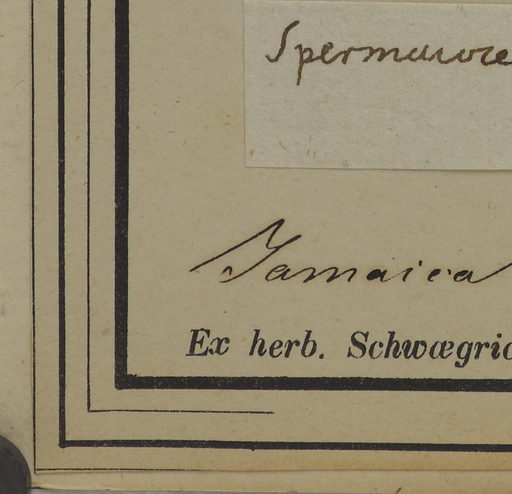 Jamaica
Ex herb. Schwægric